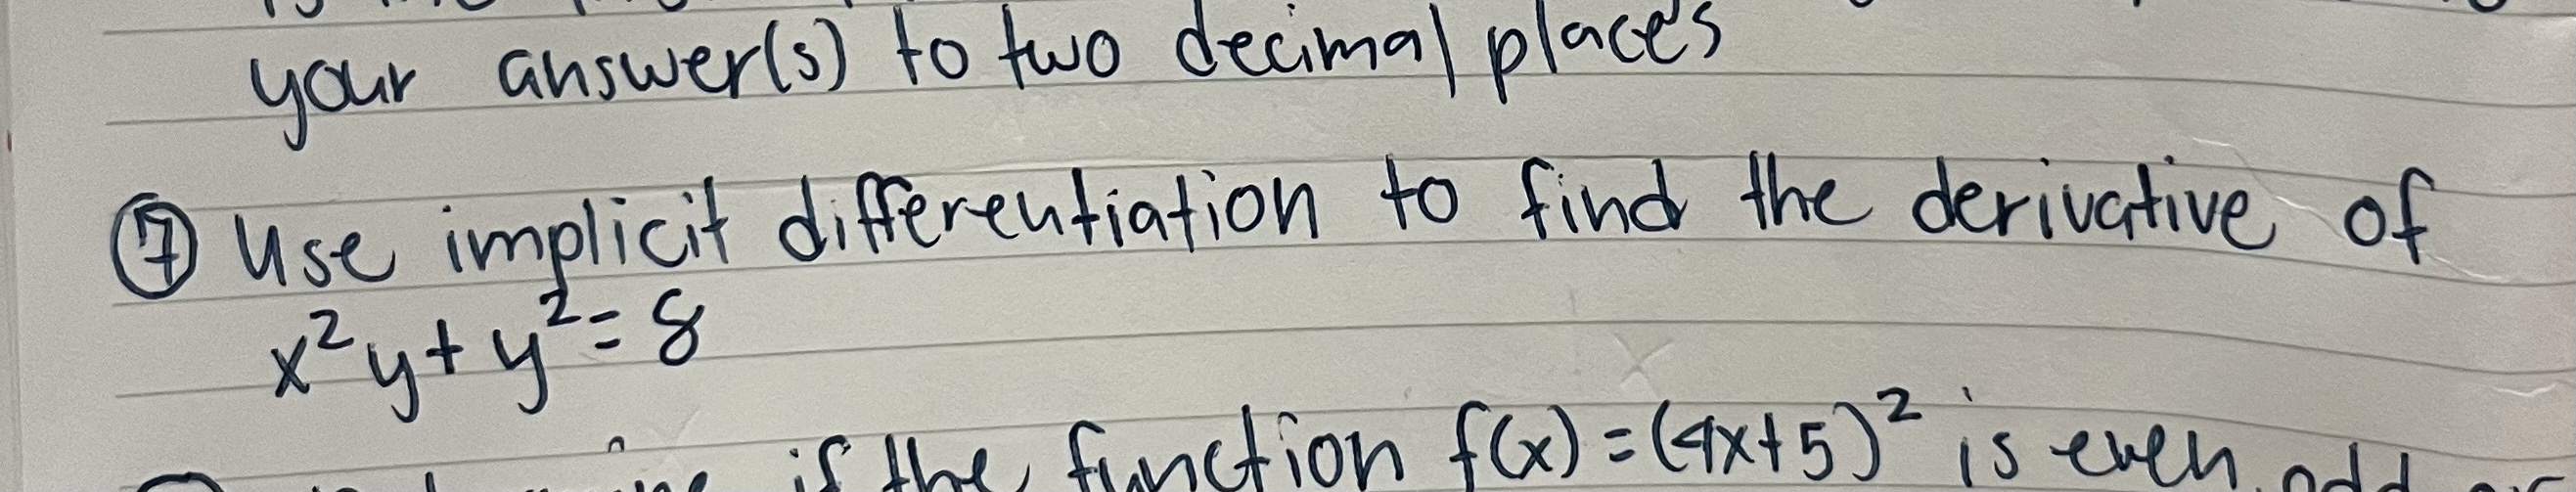 your answer(s) to two decimal places
⑦ Use implicit differentiation to find the derivative of
x²y + y² = 8
if the function f(x) = (4x+5)² is even, odd